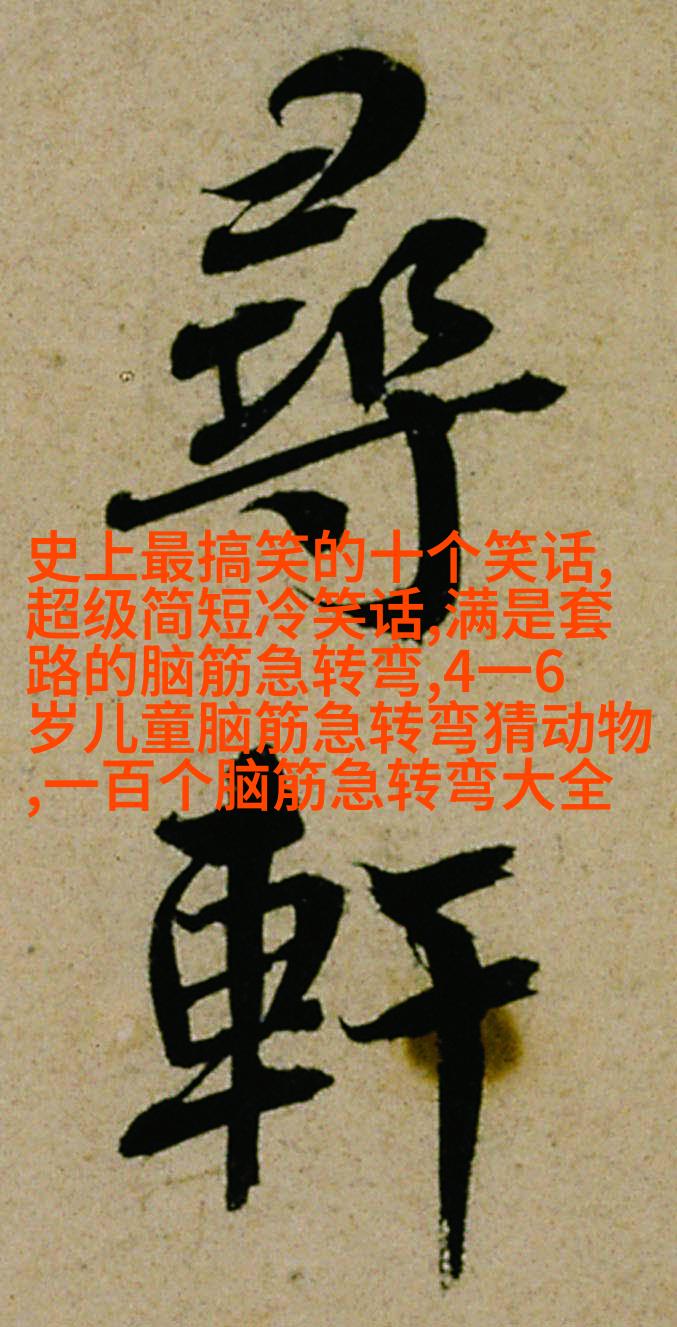 尋
軒
史上最搞笑的十个笑话,
超级简短冷笑话,满是套
路的脑筋急转弯,4一6
岁儿童脑筋急转弯猜动物
,一百个脑筋急转弯大全